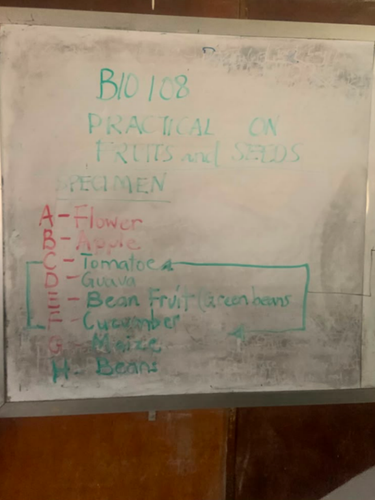 BIO 108
PRACTICAL ON
FRUITS and SEEDS
SPECIMEN
A - Flower
B - Apple
C - Tomatoe
D - Guava
E - Bean Fruit (Green beans
F - Cucumber
G - Maize
H - Beans